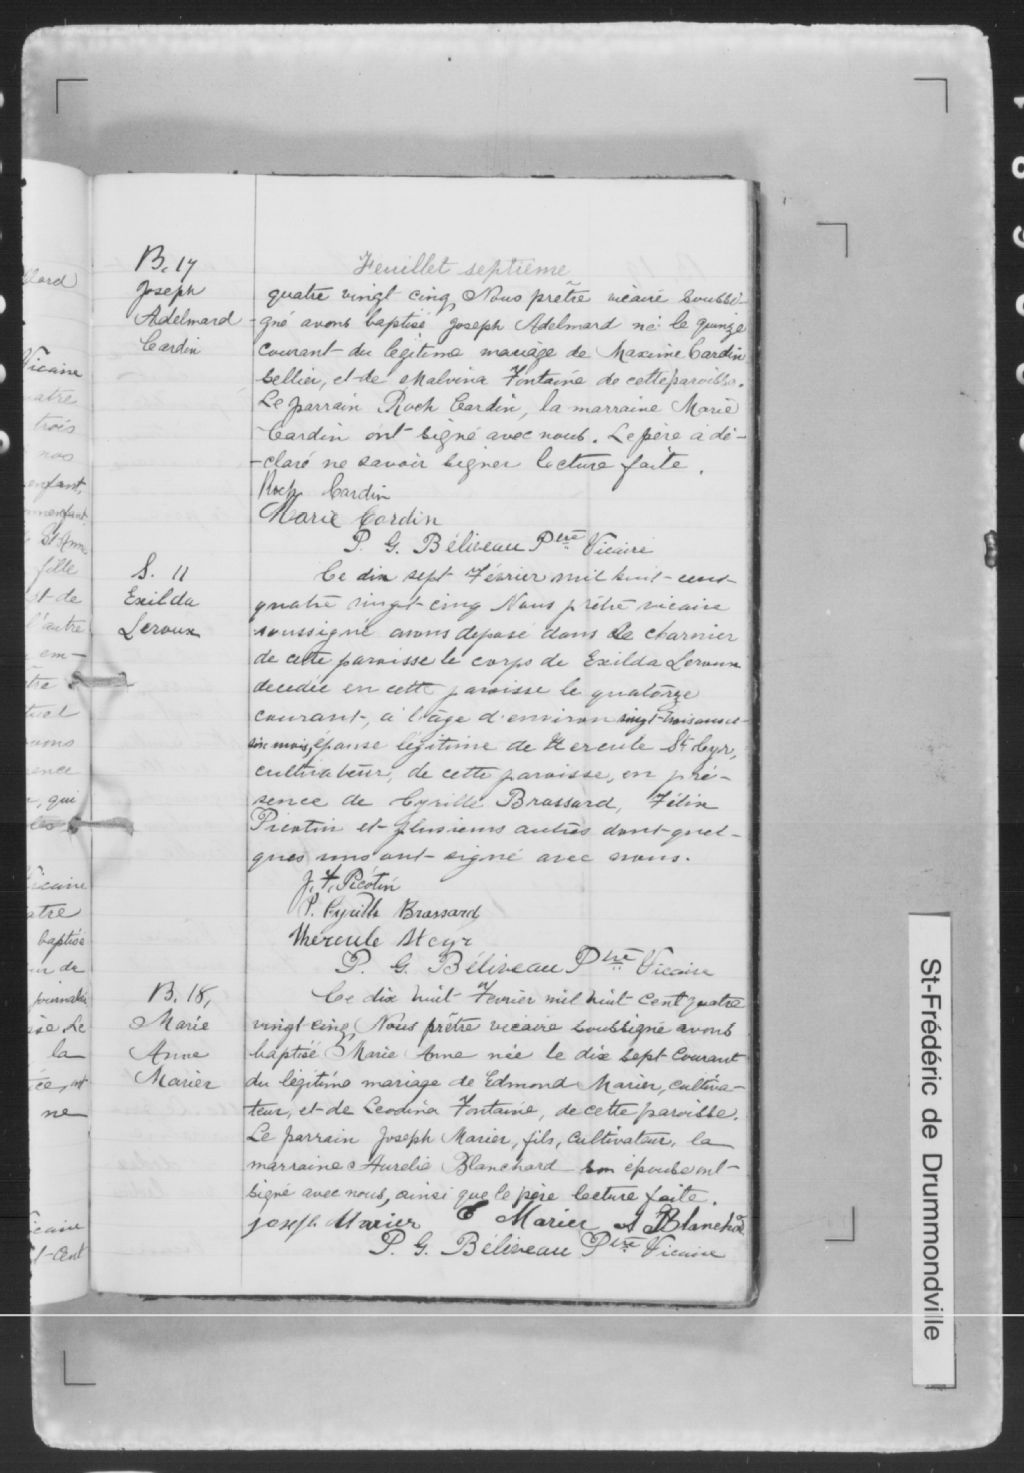 B. 17
Joseph
Adelmard
Cardin
Feuillet septième
quatre vingt cinq Nous prêtre vicaire soussi-
-gné avons baptisé Joseph Adelmard né le quinze
courant du légitime mariage de Maxime Cardin
sellier, et de Malvina Fontaine de cette paroisse.
Le parrain Roch Cardin, la marraine Marie
Cardin ont signé avec nous. Le père a dé-
-claré ne savoir signer lecture faite.
Roch Cardin
Marie Cardin
P. G. Béliveau Ptre Vicaire
S. 11
Exilda
Leroux
Ce dix sept Février mil huit cent
quatre vingt-cinq Nous prêtre vicaire
soussigné avons deposé dans le charnier
de cette paroisse le corps de Exilda Leroux
decedée en cette paroisse le quatorze
courant, à l'âge d'environ vingt-trois ans et
six mois, épouse légitime de Hercule St Cyr,
cultivateur, de cette paroisse, en pré-
sence de Cyrille Brassard, Félix
Picotin et plusieurs autres dont quel-
ques uns ont signé avec nous.
J. F. Picotin
P. Cyrille Brassard
Hercule St cyr
P. G. Béliveau Ptre Vicaire
B. 18,
Marie
Anne
Marier
Ce dix huit Fevrier mil huit cent quatre
vingt cinq Nous prêtre vicaire soussigné avons
baptisé Marie Anne née le dix sept courant
du légitime mariage de Edmond Marier, cultiva-
teur, et de Leodina Fontaine, de cette paroisse.
Le parrain Joseph Marier, fils, cultivateur, la
marraine Aurelie Blanchard son épouse ont
signé avec nous, ainsi que le père lecture faite.
Joseph Marier E Marier A Blanchard
P. G. Béliveau Ptre Vicaire
St-Frédéric de Drummondville